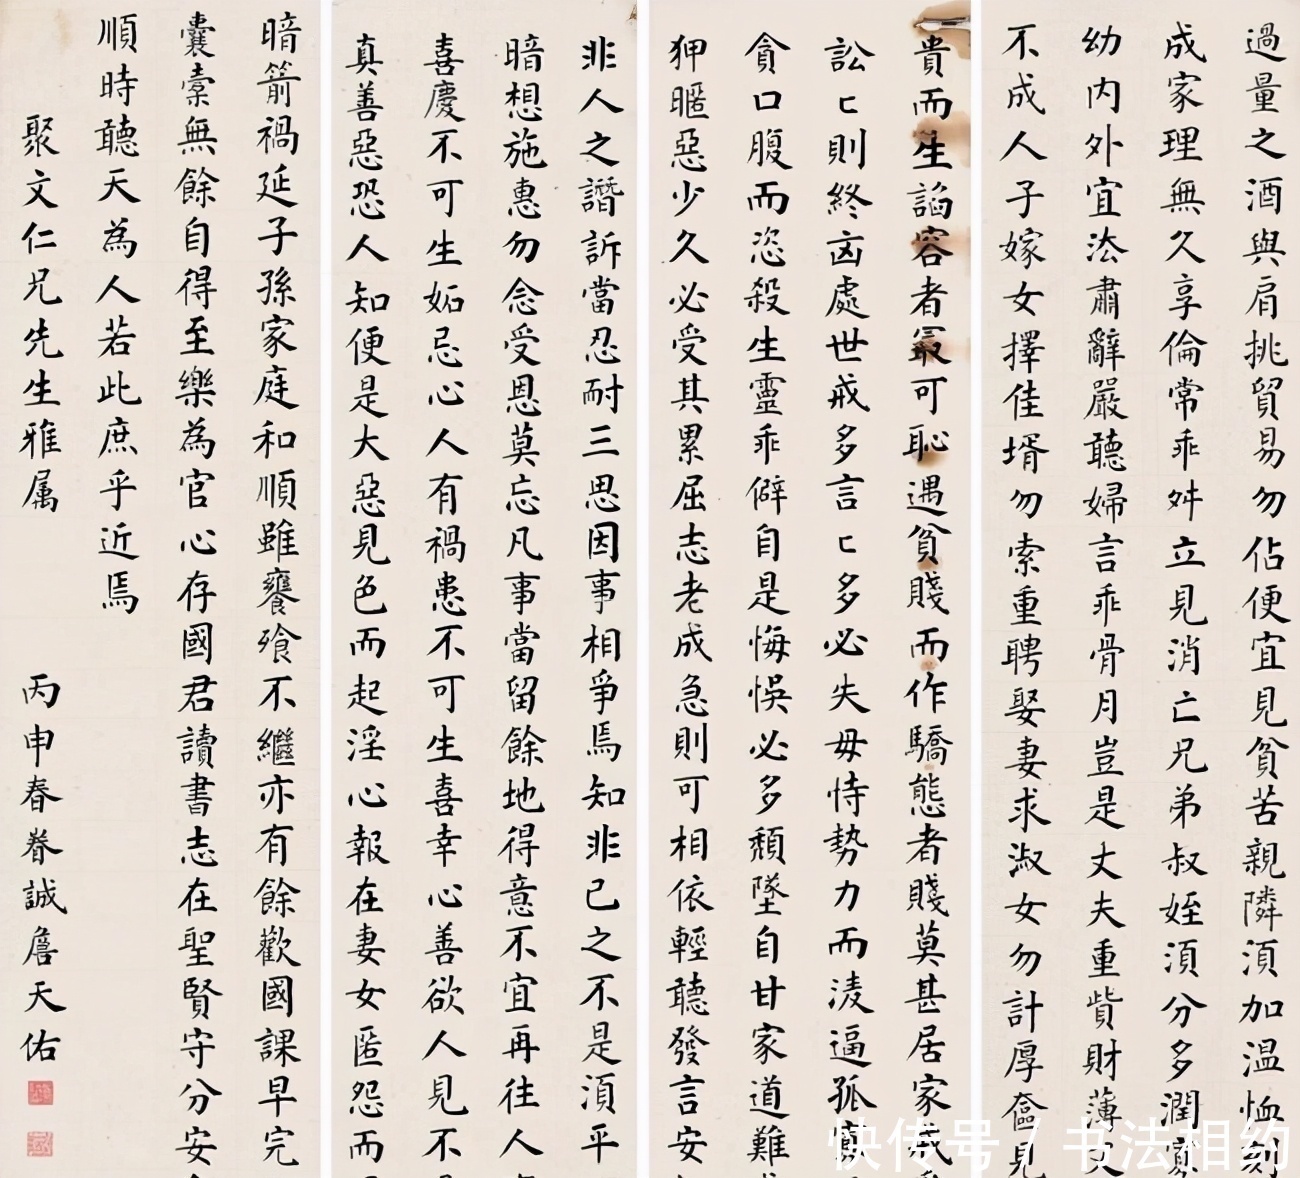 過量之酒與肩挑貿易勿佔便宜見貧苦親隣須加温恤刻
成家理無久享倫常乖舛立見消亡兄弟叔姪須分多潤寡
幼內外宜法肅辭嚴聽婦言乖骨月豈是丈夫重貲財薄父
不成人子嫁女擇佳壻勿索重聘娶妻求淑女勿計厚奩見
貴而生諂容者最可恥遇貧賤而作驕態者賤莫甚居家戒
訟匕則終凶處世戒多言匕多必失毋恃勢力而淩逼孤寡
貪口腹而恣殺生靈乖僻自是悔悞必多頽墜自甘家道難
狎暱惡少久必受其累屈志老成急則可相依輕聽發言安
非人之譖訴當忍耐三思因事相爭焉知非己之不是須平
暗想施惠勿念受恩莫忘凡事當留餘地得意不宜再往人
喜慶不可生妬忌心人有禍患不可生喜幸心善欲人見不
真善惡恐人知便是大惡見色而起淫心報在妻女匿怨而
暗箭禍延子孫家庭和順雖饔飧不繼亦有餘歡國課早完
囊橐無餘自得至樂為官心存國君讀書志在聖賢守分安
順時聽天為人若此庶乎近焉
聚文仁兄先生雅属
丙申春眷誠詹天佑
快传号/书法相约